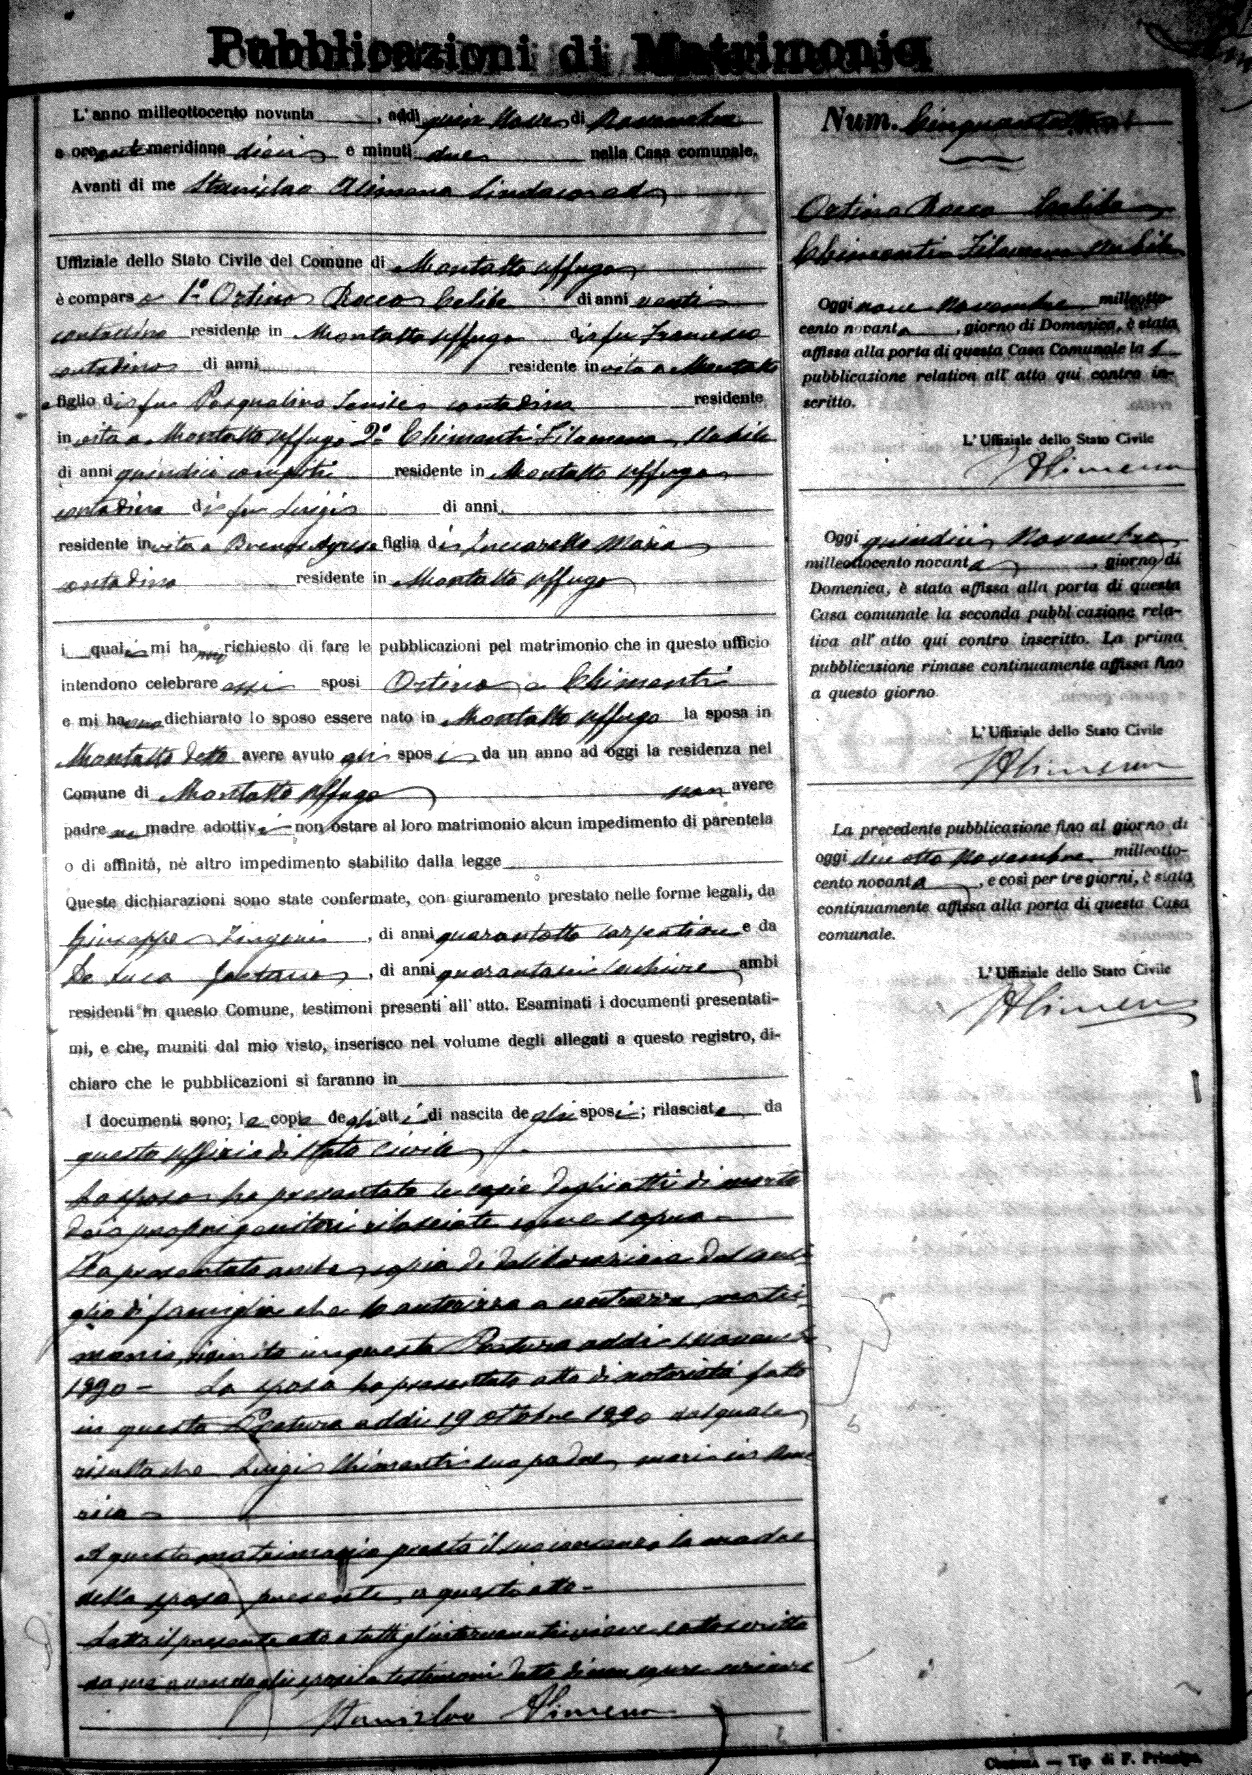 Pubblicazioni di Matrimonio
L'anno milleottocento novanta, addì nove di Novembre
a ore ante meridiane dieci e minuti due nella Casa comunale.
Avanti di me Stanislao Alimena Sindaco ed
Uffiziale dello Stato Civile del Comune di Montalto Uffugo
è compars o 1º Ortino Rocco Celibe di anni venti
contadino residente in Montalto Uffugo di fu Francesco
contadino di anni residente in vita a Montalto
figlio di fu Pasqualina contadina residente
in vita a Montalto Uffugo 2º Chimenti Filomena Nubile
di anni quindici compiti residente in Montalto Uffugo
contadina di fu Luigi di anni
residente in vita a Buenos figlia di Zuccarello Maria
contadina residente in Montalto Uffugo
i quali mi hanno richiesto di fare le pubblicazioni pel matrimonio che in questo ufficio
intendono celebrare essi sposi Ortino e Chimenti
e mi hanno dichiarato lo sposo essere nato in Montalto Uffugo la sposa in
Montalto detto avere avuto gli sposi da un anno ad oggi la residenza nel
Comune di Montalto Uffugo non avere
padre ne madre adottivi non ostare al loro matrimonio alcun impedimento di parentela
o di affinità, nè altro impedimento stabilito dalla legge
Queste dichiarazioni sono state confermate, con giuramento prestato nelle forme legali, da
Giuseppe , di anni quarantotto e da
De Luca Gaetano, di anni quarantasei ambi
residenti in questo Comune, testimoni presenti all'atto. Esaminati i documenti presentati-
mi, e che, muniti dal mio visto, inserisco nel volume degli allegati a questo registro, di-
chiaro che le pubblicazioni si faranno in
I documenti sono; le copie degli atti di nascita degli sposi; rilasciate da
questo uffizio di Stato Civile
Lo sposo ha presentato le copie degli atti di morte
dei propri genitori rilasciate come sopra -
Ha presentato anche copia di deliberazione del consi-
glio di famiglia che lo autorizza a contrarre matri-
monio, riunito in questa Pretura addì Novembre
1890 - La sposa ha presentato atto di notorietà fatto
in questa Pretura addì 19 ottobre 1890 dal quale
risulta che Luigi Chimenti suo padre morì in Ame
rica -
A questo matrimonio presta il suo consenso la madre
della sposa presente a questo atto -
Letto il presente atto a tutti gl'intervenuti viene sottoscritto
da me e non dagli sposi e testimoni detto di non sapere scrivere
Stanislao Alimena
Num. Cinquantotto
Ortino Rocco Celibe
Chimenti Filomena Nubile
Oggi nove Novembre milleotto-
cento novanta, giorno di Domenica, è stata
affissa alla porta di questa Casa Comunale la 1
pubblicazione relativa all'atto qui contro in-
scritto.
L'Uffiziale dello Stato Civile
Alimena
Oggi quindici Novembre
milleottocento novanta, giorno di
Domenica, è stata affissa alla porta di questa
Casa comunale la seconda pubblicazione rela-
tiva all'atto qui contro inscritto. La prima
pubblicazione rimase continuamente affissa fino
a questo giorno
L'Uffiziale dello Stato Civile
Alimena
La precedente pubblicazione fino al giorno di
oggi dieciotto Novembre milleotto-
cento novanta, e così per tre giorni, è stata
continuamente affissa alla porta di questa Casa
comunale.
L'Uffiziale dello Stato Civile
Alimena
Cosenza — Tip. di F. Principe